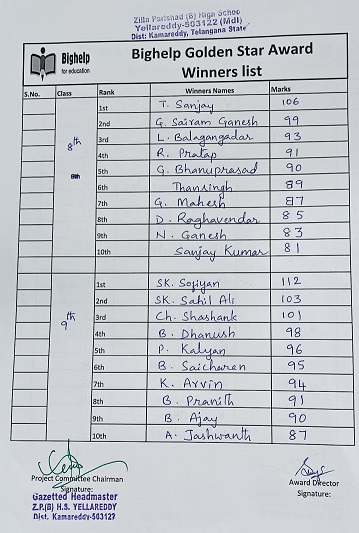 Zilla Parishad (B) High School
Yellareddy-503122 (Mdl)
Dist: Kamareddy, Telangana State
Bighelp
for education
Bighelp Golden Star Award
Winners list
S.No. Class Rank Winners Names Marks
1st T. Sanjay 106
2nd G. Sairam Ganesh 99
8th 3rd L. Balagangadar 93
4th R. Pratap 91
5th G. Bhanuprasad 90
6th Thansingh 89
7th G. Mahesh 87
8th D. Raghavendar 85
9th N. Ganesh 83
10th Sanjay Kumar 81
1st SK. Sofiyan 112
2nd SK. Sahil Ali 103
9th 3rd Ch. Shashank 101
4th B. Dhanush 98
5th P. Kalyan 96
6th B. Saicharen 95
7th K. Arvin 94
8th B. Pranith 91
9th B. Ajay 90
10th A. Jashwanth 87
Project Committee Chairman Award Director
Signature: Signature:
Gazetted Headmaster
Z.P.(B) H.S. YELLAREDDY
Dist. Kamareddy-503127